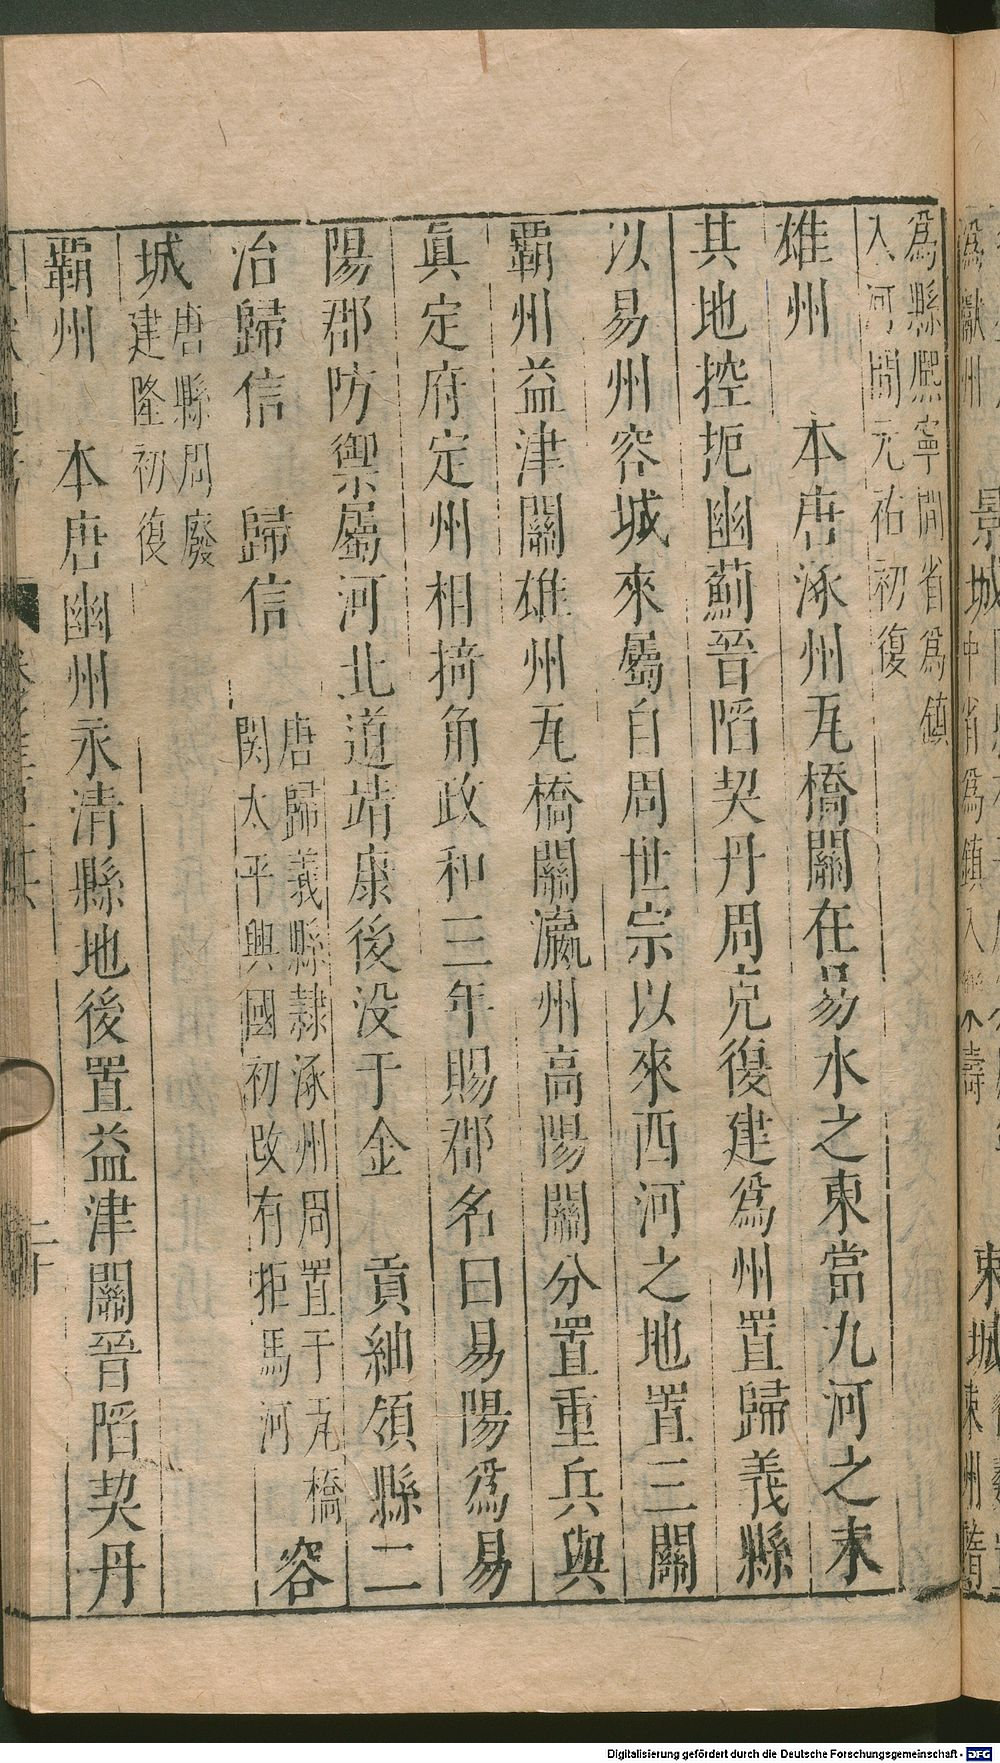 爲縣熈寧間省爲鎮
入河間元祐初復
雄州　本唐涿州瓦橋關在易水之東當九河之末
其地控扼幽薊晉陷契丹周克復建爲州置歸義縣
以易州容城來屬自周世宗以來西河之地置三關
霸州益津關雄州瓦橋關瀛州高陽關分置重兵與
眞定府定州相掎角政和三年賜郡名曰易陽爲易
陽郡防禦屬河北道靖康後没于金　貢紬領縣二
治歸信　歸信　唐歸義縣隷涿州周置于瓦橋
関太平興國初改有拒馬河　容
城　唐縣周廢
建隆初復
霸州　本唐幽州永清縣地後置益津關晉陷契丹
景城
中省爲鎮入樂壽
東城
Digitalisierung gefördert durch die Deutsche Forschungsgemeinschaft - DFG